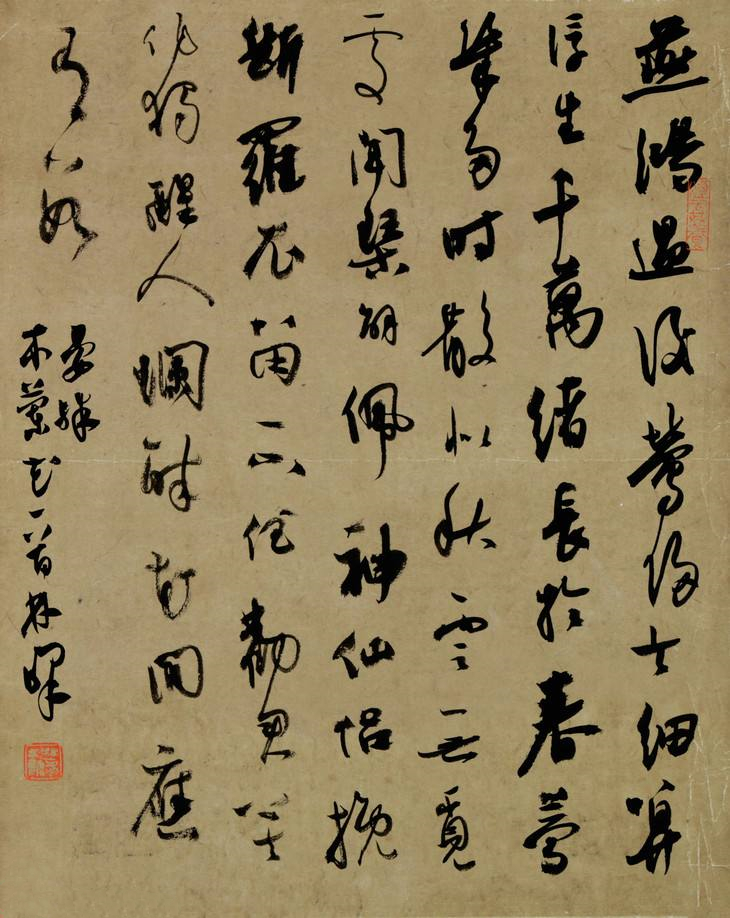 燕鴻過後鶯歸去細算
浮生千萬緒長於春夢
幾多時散似秋雲無覓
處聞琴解佩神仙侶挽
斷羅衣留不住勸君莫
作獨醒人爛醉花間應
有數
晏殊
木蘭花一首林